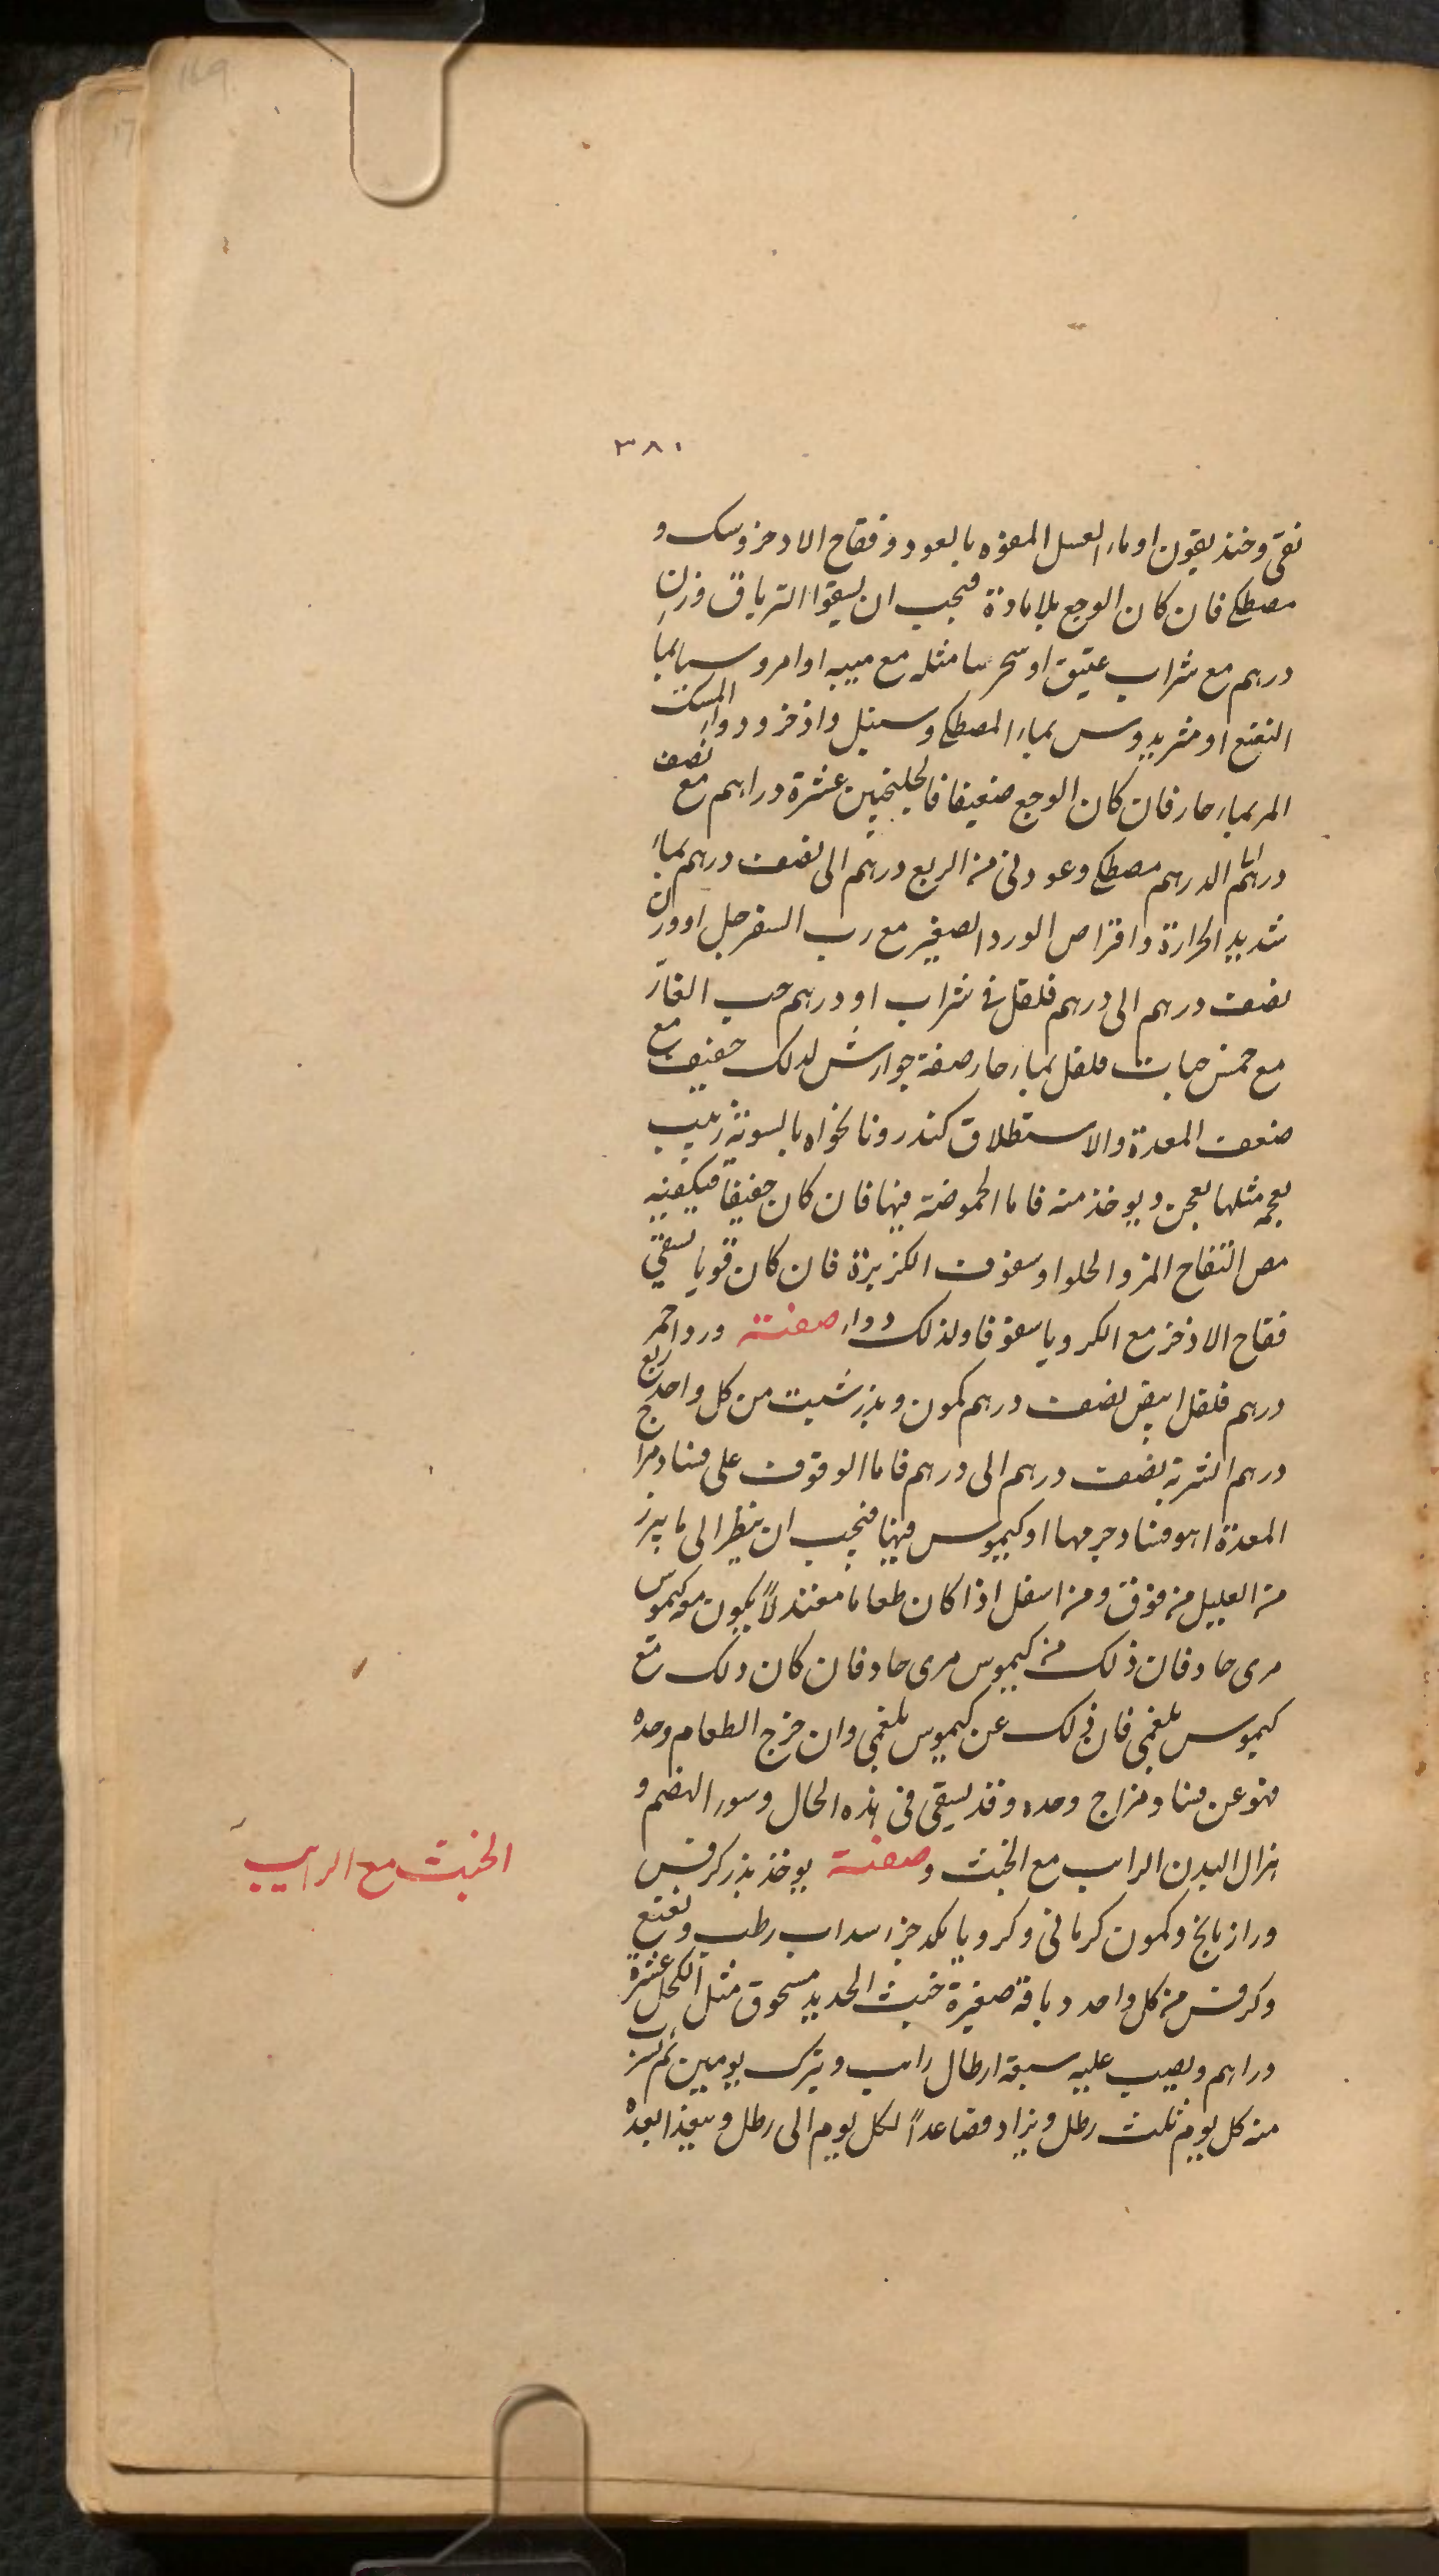 ٣٨١
نقى وخنديقون او ماء العسل المفوه بالعود وفقاح الاذخر وسك و
مصطكى فان كان الوجع بلا مادة فيجب ان يسقوا الترياق وزن
درهم مع شراب عتيق او سجرينا مثله مع ميبه او امروسيا بماء
النعنع او مثريديوس بماء المصطكى وسنبل واذخر ودواء المسك
المر بماء حار فان كان الوجع ضعيفا فالجلنجبين عشرة دراهم مع نصف
درهم الى الدرهم مصطكى وعود نى من الربع درهم الى نصف درهم بماء
شديد الحرارة واقراص الورد الصغير مع رب السفرجل او وزن
نصف درهم الى درهم فلفل فى شراب او درهم حب الغار
مع خمس حبات فلفل بماء حار صفة جوارش لذلك خفيف مع
ضعف المعدة والاستطلاق كندر ونانخواه بالسوية زبيب
بعجمه مثلها يعجن ويوخذ منه فاما الحموضة فيها فان كان خفيفا فيكفيه
مص التفاح المز والحلو او سفوف الكزبرة فان كان قويا يسقى
فقاح الاذخر مع الكرويا سفوفا ولذلك دواء صفته ورد احمر
درهم فلفل ابيض نصف درهم كمون وبزر شبت من كل واحد ربع
درهم الشربة نصف درهم الى درهم فاما الوقوف على فساد مزاج
المعدة اهو فساد جرمها او كيموس فيها فيجب ان ينظر الى ما يبرز
من العليل من فوق ومن اسفل اذا كان طعاما معتدلاً يكون معه كيموس
مرى حاد فان ذلك من كيموس مرى حاد فان كان ذلك مع
كيموس بلغمى فان ذلك عن كيموس بلغمى وان خرج الطعام وحده
فهو عن فساد مزاج وحده وقد يسقى فى هذه الحال وسوء الهضم و
هزال البدن الرايب مع الخبث وصفته يوخذ بزر كرفس
ورازيانج وكمون كرمانى وكرويا يكد جزء سداب رطب ونعنع
وكرفس من كل واحد دباقة صغيرة خبث الحديد مسحوق مثل الكحل عشرة
دراهم ويصب عليه سبعة ارطال رايب ويترك يومين ثم يشرب
منه كل يوم ثلث رطل ويزاد فصاعداً لكل يوم الى رطل ويتغذا بعده
الخبث مع الرايب